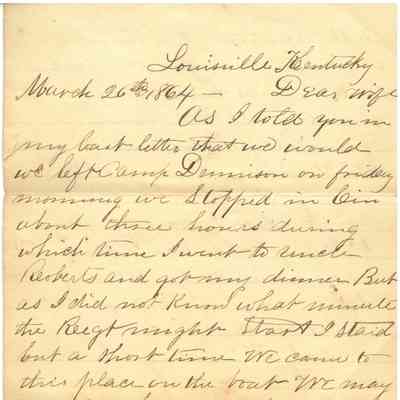 Louisville Kentucky
March 26th 1864 — Dear wife
As I told you in
my last letter that we would
we left Camp Dennison on friday
morning we Stopped in Cin
about three hours during
which time I went to uncle
Roberts and got my dinner But
as I did not Know what minute
the Regt might Start I staid
but a short time We came to
this place on the boat We may